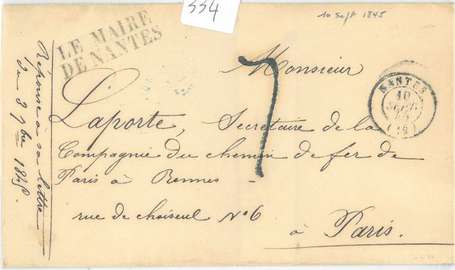 334
10 Sept 1845
LE MAIRE
DE NANTES
Monsieur
Laporte, Secrétaire de la
Compagnie du chemin de fer de
Paris à Rennes
rue de choiseul N°6
à Paris.
7
NANTES
10
SEPT.
(42)
Réponse à sa lettre
du 2 7bre 1845